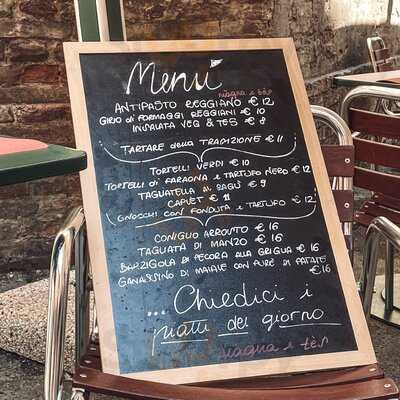 Menù
magna e tès
ANTIPASTO REGGIANO € 12
GIRO di FORMAGGI REGGIANI € 10
INSALATA VEG & TES € 8
TARTARE della TRADIZIONE € 11
TORTELLI VERDI € 10
TORTELLI di FARAONA e TARTUFO NERO € 12
TAGLIATELLA AL RAGÙ € 9
CAPLET € 11
GNOCCHI CON FONDUTA e TARTUFO € 12
CONIGLIO ARROSTO € 16
TAGLIATA DI MANZO € 16
BARZIGOLA DI PECORA ALLA GRIGLIA € 16
GANASSINO DI MAIALE CON PURÈ DI PATATE
€ 16
... Chiedici i
piatti del giorno
magna e tès